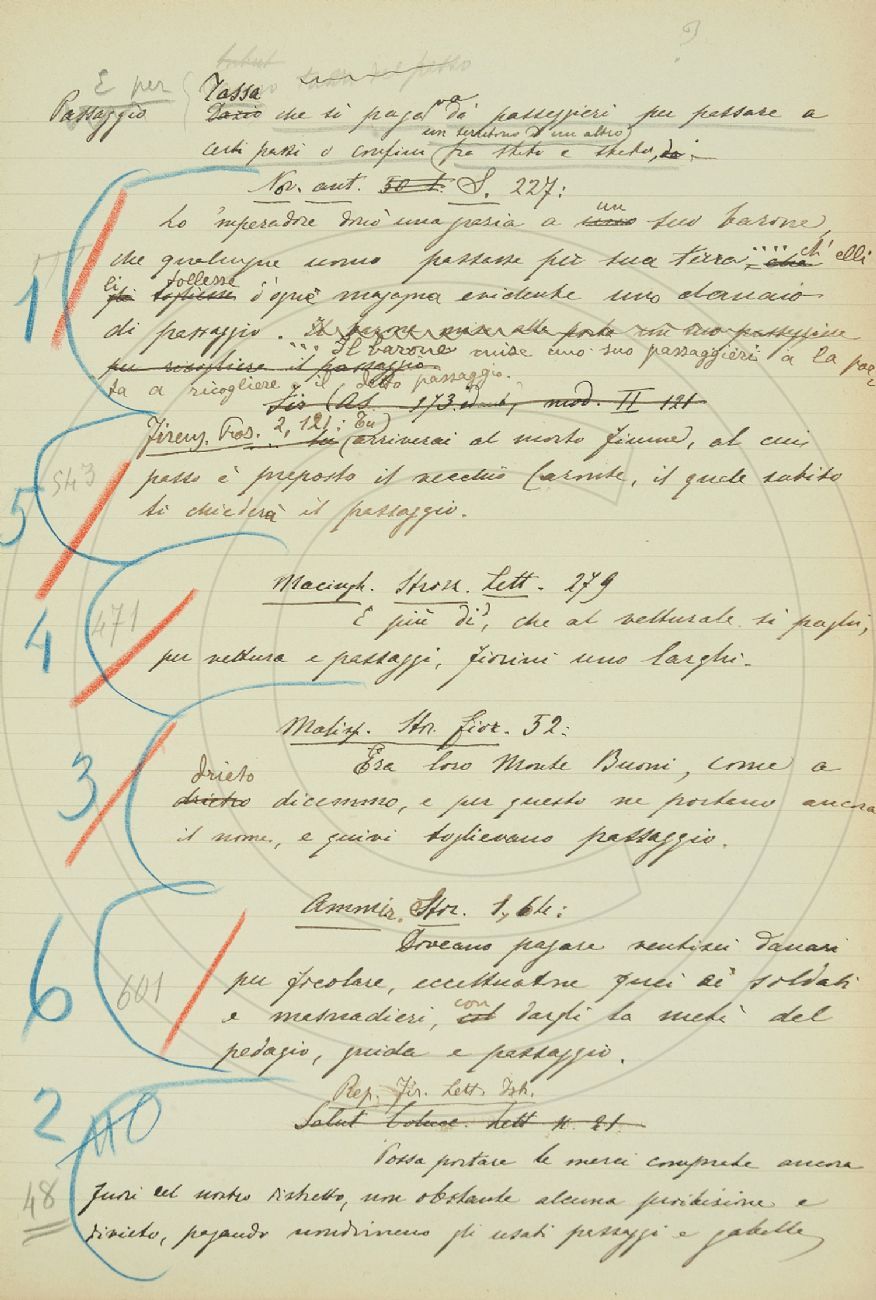 E per
Tassa
Passaggio Dazio che si pagava da' passeggieri per passare a
un territorio d'un altro
certi passi o confini fra stato e stato,
Nov. ant. S. 227:
Lo 'mperadore donò una grazia a uno un suo barone,
che qualunque uomo passasse per sua terra.... che ch' elli
li tollesse
gli togliesse d'ogne magagna evidente uno danaio
di passaggio. Il barone mise alla porta un suo passeggiere
.... Il barone mise uno suo passaggieri a la por
per ricogliere il passaggio
ta a ricogliere il detto passaggio.
mod. II 121
Firenz. Pros. 2, 121: Tu
arriverai al morto fiume, al cui
passo è preposto il vecchio Caronte, il quale subito
ti chiederà il passaggio.
543
Macingh. Strozz. Lett. 279
E più dì, che al vetturale si paghi,
per vettura e passaggi, fiorini uno larghi.
471
Malisp. Stor. fior. 52:
Era loro Monte Buoni, come a
drieto
drietro dicemmo, e per questo ne portano ancora
il nome, e quivi toglievano passaggio.
Ammir. Stor. 1, 64:
Doveano pagare ventisei danari
per focolare, eccettuatone
e masnadieri, con dargli la metà del
pedagio, guida e passaggio.
601
Rep. Fir. Lett. Ist.
Salut. Coluc. Lett. n. 21.
Possa portare le merci comprate ancora
fuori del nostro distretto, non obstante alcuna proibizione e
divieto, pagando nondimeno gli usati passaggi e gabelle
1
5
4
3
6
2
48